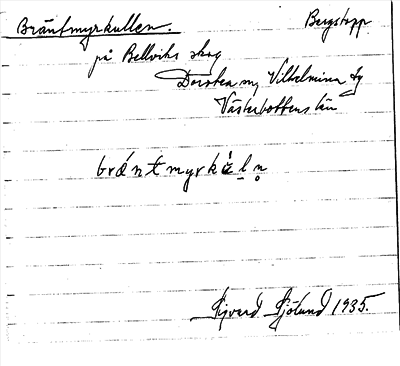 Bräntmyrkullen. Bergstopp
på Bellviks skog
Dorotea sn, Vilhelmina tg
Västerbottens län
Sigvard Sjölund 1935.